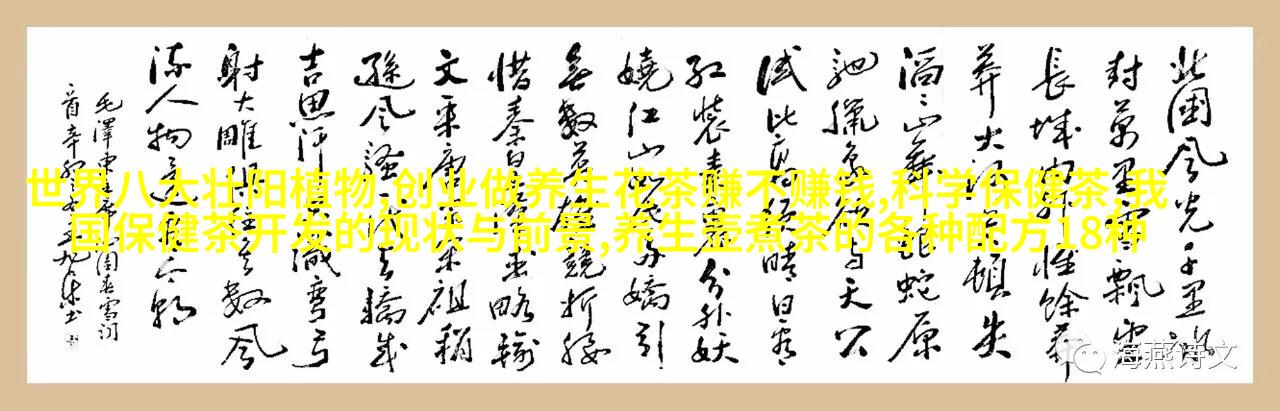 世界八大壮阳植物,创业做养生花茶赚不赚钱,科学保健茶,我
国保健茶开发的现状与前景,养生壶煮茶的各种配方18种
北國风光千里冰
封萬里雪飄望
長城内外惟餘莽
莽大河上下頓失
滔滔山舞銀蛇原
馳臘象欲与天公
試比高須晴日看
红裝素裹分外妖
嬈江山如此多嬌引
無數英雄競折腰
惜秦皇漢武略輸
文采唐宗宋祖稍
遜风騷一代天驕成
吉思汗只識彎弓
射大雕俱往矣數风
流人物還看今朝
毛澤東主席沁園春雪詞
海燕诗文